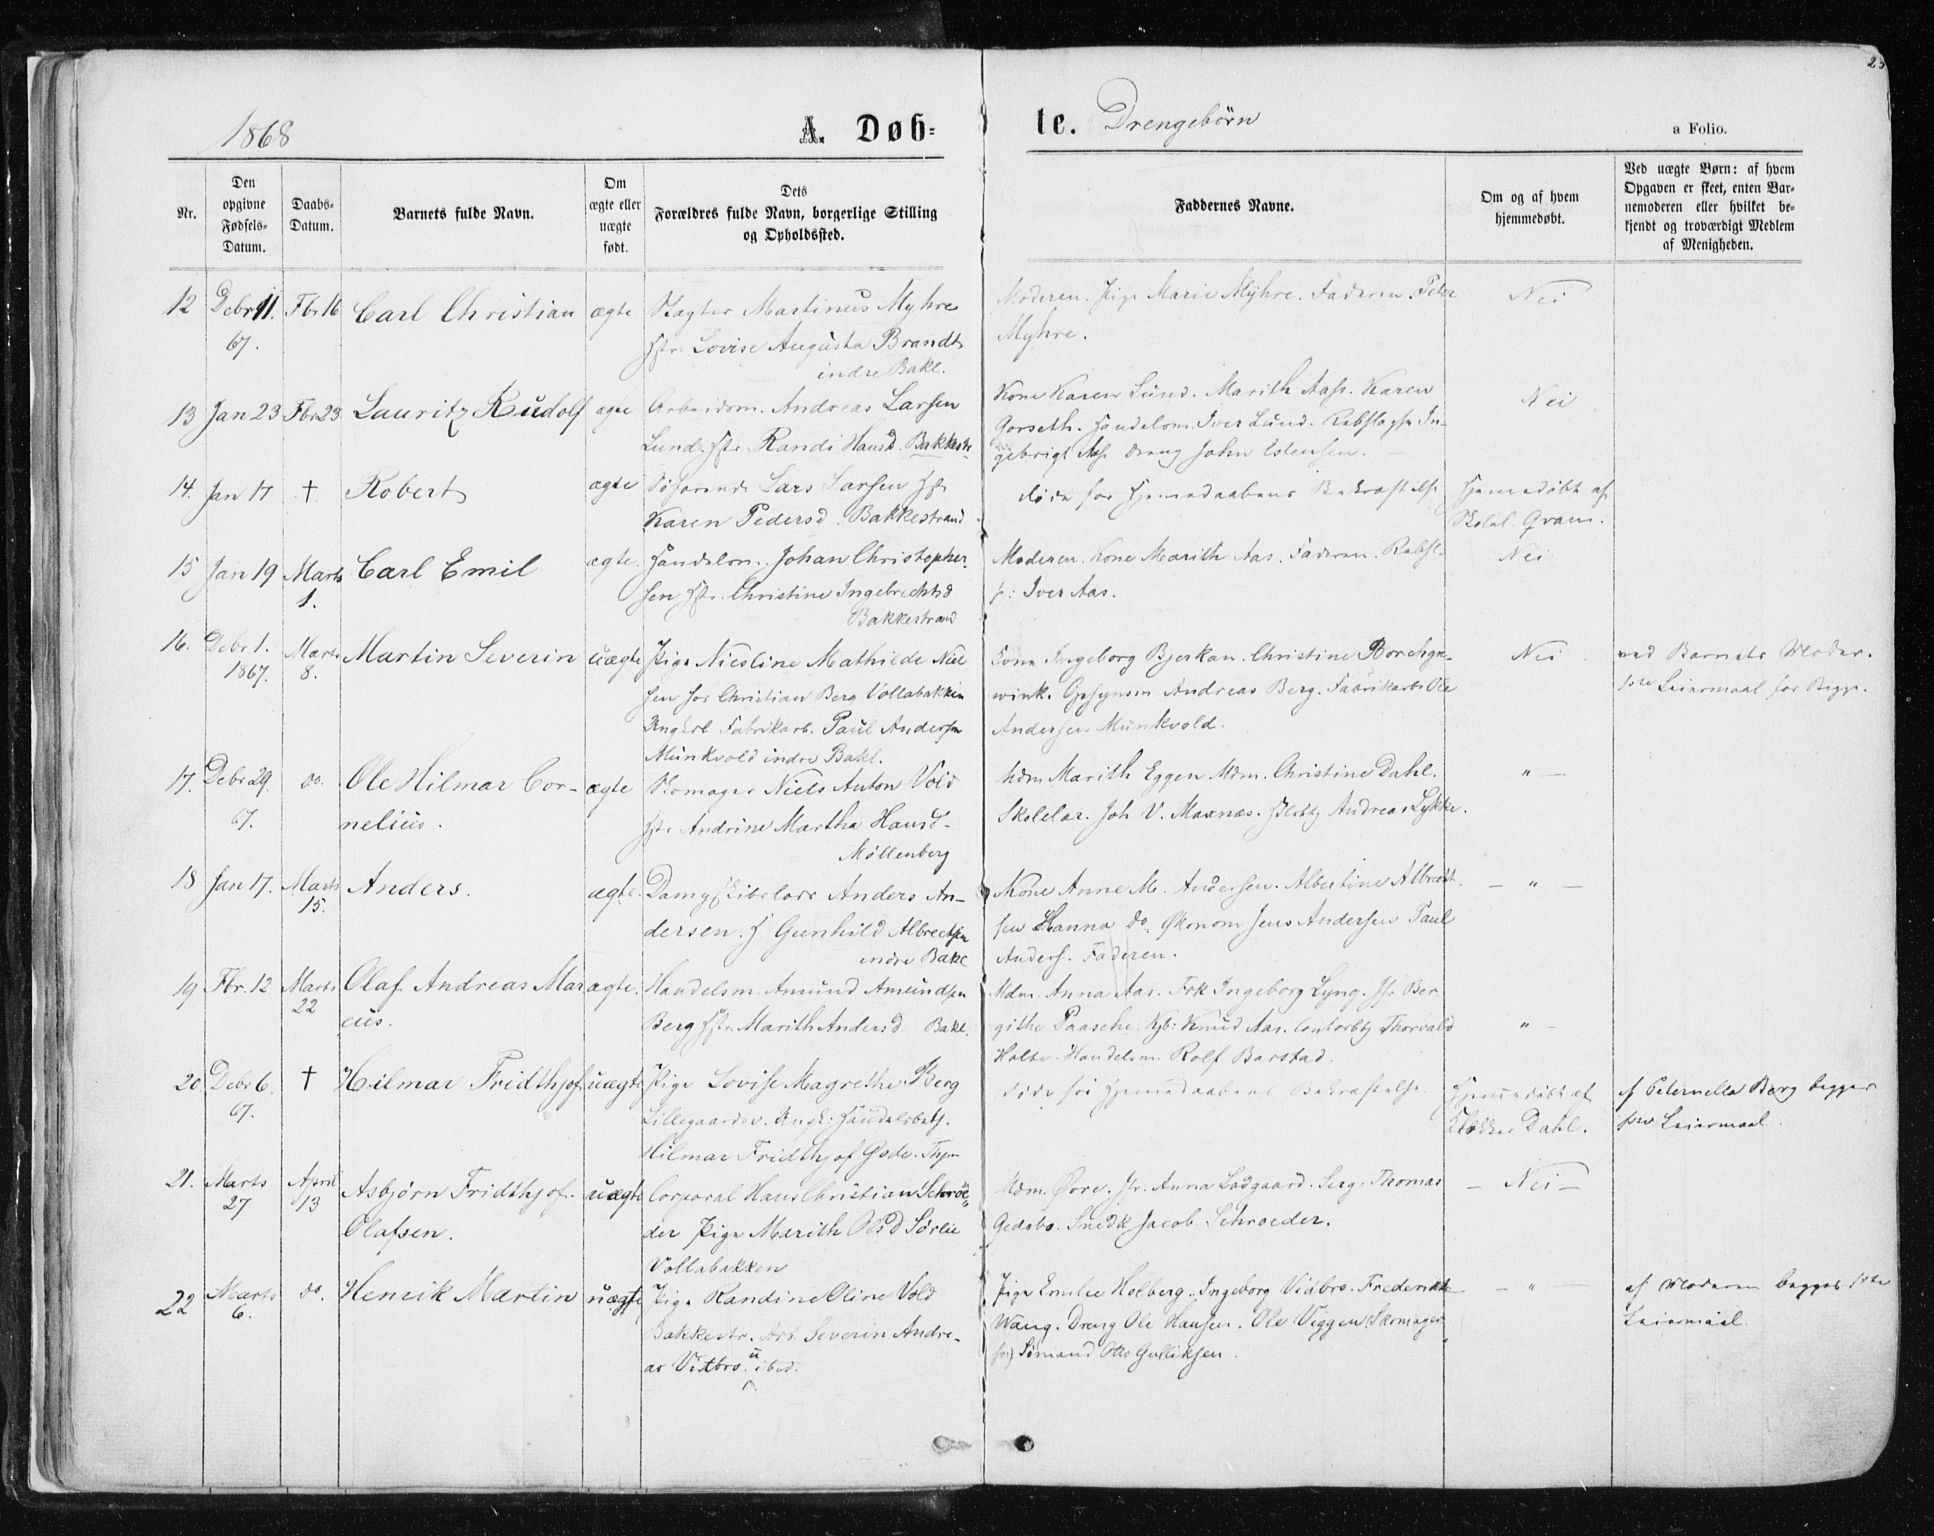 23
1868 A. Døb- te. Drengebörn a Folio.
Nr.
Den opgivne Fødsels-Datum.
Daabs-Datum.
Barnets fulde Navn.
Om ægte eller uægte født.
Dets Forældres fulde Navn, borgerlige Stilling og Opholdssted.
Faddernes Navne.
Om og af hvem hjemmedøbt.
Ved uægte Børn: af hvem Opgaven er skeet, enten Barnemoderen eller hvilket bekjendt og troværdigt Medlem af Menigheden.
12 Debr 11. Fbr 16 Carl Christian ægte Slagter Martinus Myhre Moderen. Pige Marie Myhre. Faderen. Peter Nei
67. Hstr. Lovise Augusta Brandt Myhre.
indre Bakl.
13 Jan 23 Fbr 23 Lauritz Rudolf ægte Arbeidsm. Andreas Larsen Kone Karen Lund. Marith Aas. Karen Nei
Lund. Hstr Randi Hansd. Bakkestr. Gorseth. Handelsm. Iver Lund. Rebslager In-
gebrigt Aas Dreng John Estensen.
14. Jan 17 † Robert ægte Søfarende Lars Larsen Hstr døde før Hjemmedaabens Bekræftelse Hjemmedøbt af
Karen Pedersd. Bakkestrand. Skolel. Qvam.
15 Jan 19 Marts Carl Emil ægte. Handelsm. Johan Christopher- Moderen. Kone Marith Aas. Faderen. Rebsl- Nei
1. sen Hstr. Christine Ingebrechtsd Iver Aas.
Bakkestrand
16. Debr 1. Marts Martin Severin uægte Pige Nicoline Mathilde Niel Kone Ingeborg Bjerkan. Christine Borchgre- Nei ved Barnets Moder.
1867. 8. sen hos Christian Berg Vollabakken wink. Opsynsm Andreas Berg. Fabrikarb. Ole Leiermaal for Begge.
Ungkarl Fabrikarb. Paul Andersen Andersen Munkvold.
Munkvold indre Bakl.
17. Debr 29. do. Ole Hilmar Cor- ægte Skomager Niels Anton Vold Mdm Marith Eggen Mdm. Christine Dahl. " —
67. nelius. Hstr Andrine Martha Hansd- Skolelær. Joh V. Maxnæs. Andreas Lykke.
Møllenberg
18 Jan 17. Marts Anders. ægte. Anders An- Kone Anne M. Andersen. Albertine Albrecht- — " —
15. dersen. H Gunhild Albrechtsen sen Hanna do. Økonom Jens Andersen Paul
indre Bakl Anders. Faderen.
19 Fbr. 12 Marts Olaf Andreas Mar ægte. Handelsm. Amund Amundsen Mdm. Anna Aas. Frk Ingeborg Lyng. Jfr Ber-
22 cus. Berg Hstr Marith Andersd. Bakl. githe Paasche. Kjb: Knud Aas. Contorbtj Thorvald " —
Holte. Handelsm. Rolf Barstad.
20 Debr 6. † Hilmar Fridthjof uægte Pige Lovise Magrethe Berg døde før Hjemmedaabens Bekræftelse. Hjemmedøbt af af Peternella Berg begges
67. Lillegaardsv. Ungk: Handelsbetj. Klokker Dahl. Leiermaal.
Hilmar Fridthjof Gade. Thjem
21. Marts April Asbjørn Fridthjof. uægte Corporal Hans Christian Schrøe- Mdm. Øvre. Jfr. Anna Ladgaard. Serg. Thomas — Nei —
27 13 Olafsen. der Pige Marith Olsd Sørlie Gedebo. Snedk Jacob Schroeder.
Vollabakken
22 Marts do. Henrik Martin uægte Pige Randine Oline Vold Pige Emilie Holberg. Ingeborg Vidbro. Frederikke — " — af Moderen begges 1ste
6. Bakkestr. Arb. Severin Andre- Wang. Dreng Ole Hansen. Ole Viggen Skomager Leiermaal.
as Vidbro. u ibid. Sømand Otto Gulliksen.